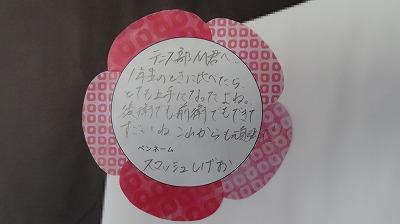 テニス部M君へ.
1年生のときに比べたら
とても上手になったよね。
後衛でも前衛でもできて
すごいね これからも頑張
ペンネーム
スマッシュしげお